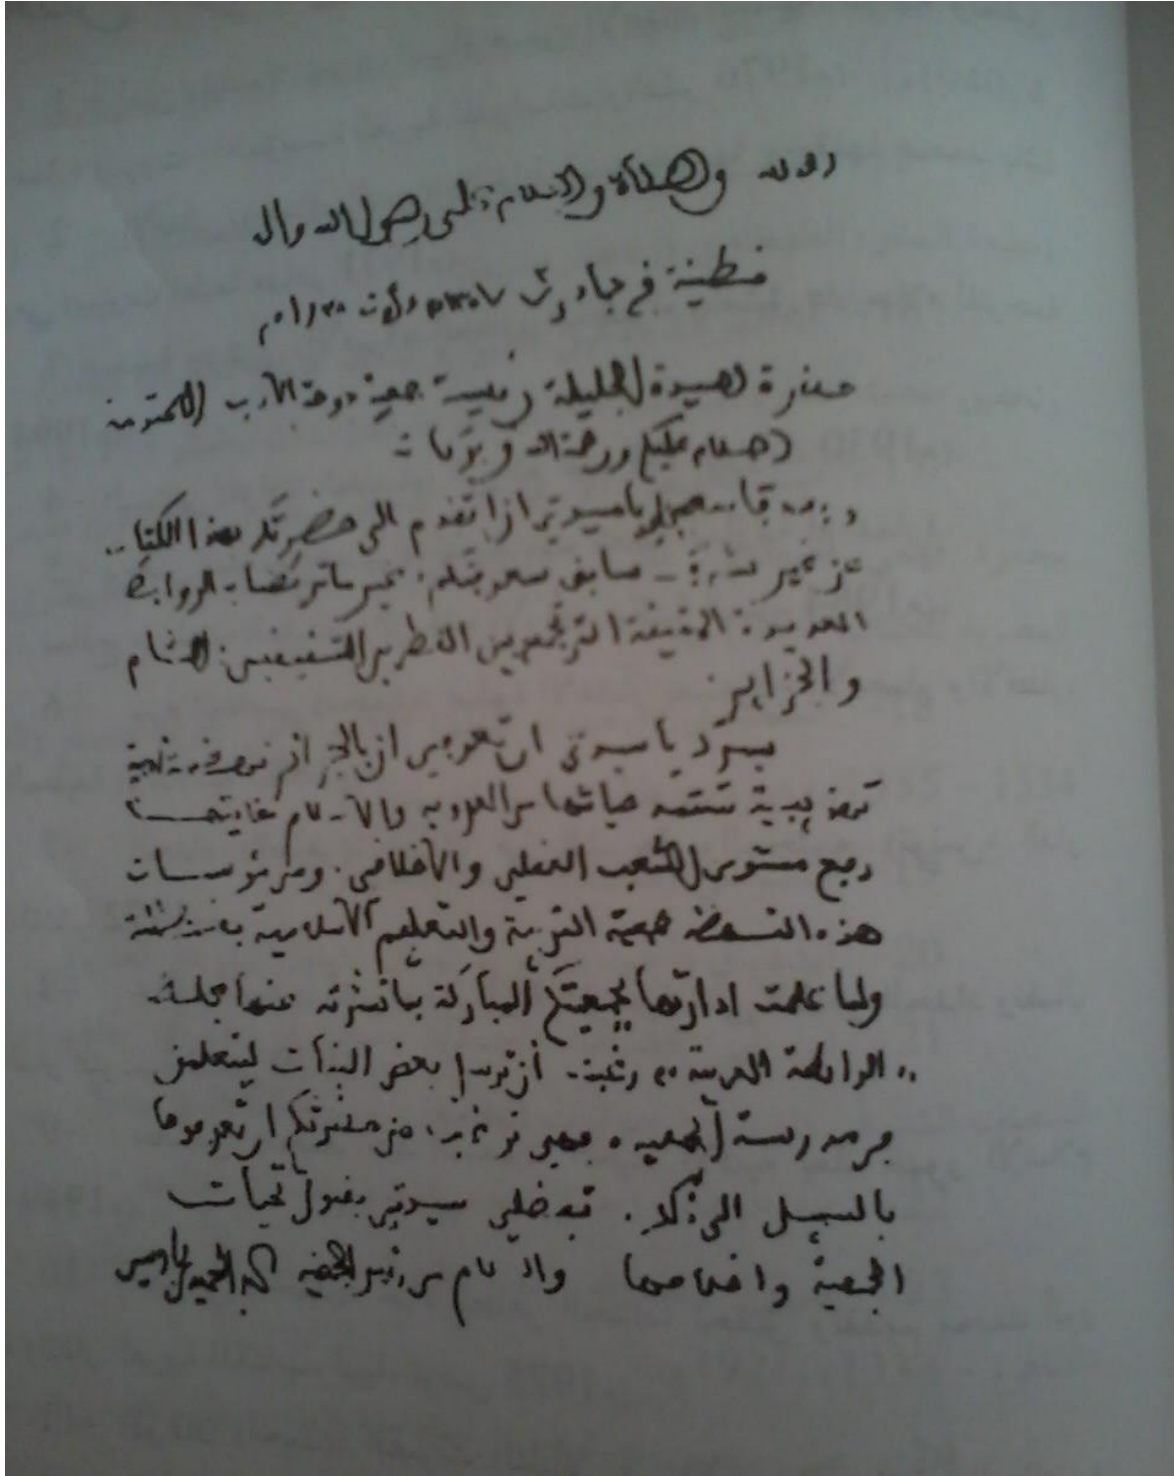 والصلاة والسلام على رسول الله وآله
قسنطينة في جمادى
حضرة السيدة الجليلة رئيسة جمعية دوحة الأدب المحترمة
السلام عليكم ورحمة الله وبركاته
وبعد يا سيدتي أن أتقدم إلى حضرتكم بهذا الكتاب
عن غير سابق معرفة بكم غير ما تربطنا به الروابط
العديدة المتينة التي تجمع بين القطرين الشقيقين: الشام
والجزائر.
يسرك يا سيدتي أن تعلمي أن بالجزائر نهضة أدبية
تهذيبية تستمد حياتها من العروبة والإسلام غايتها
رفع مستوى الشعب العقلي والأخلاقي. ومن مؤسسات
هذه النهضة جمعية التربية والتعليم الإسلامية بقسنطينة
ولما علمت إدارتها بجمعيتكم المباركة بما نشرته عنها مجلة
"الرابطة العربية" رغبت أن ترسل بعض البنات ليتعلمن
في مدرسة الجمعية، فهي ترغب من حضرتكم أن تعرفوها
بالسبيل إلى ذلك. تفضلي سيدتي بقبول تحيات
الجمعية وإخلاصها والسلام من رئيس الجمعية عبد الحميد بن باديس